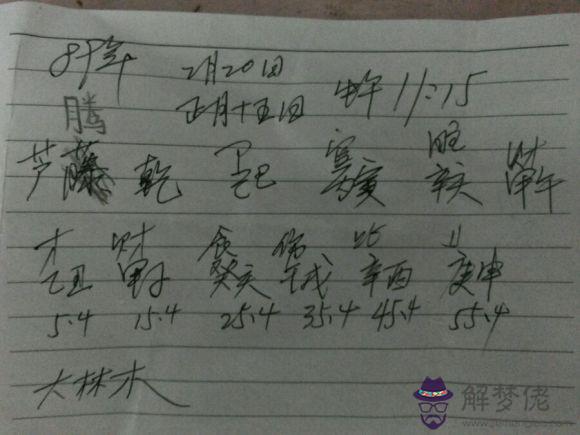 89年 2月20日
腾 正月十五日 中午11:15
芦藤 乾 己巳 寅 旺 辛亥 财 甲午
才 财 食 伤 比
乙丑 甲子 癸亥 壬戌 辛酉 庚申
5.4 15.4 25.4 35.4 45.4 55.4
大林木
解梦佬